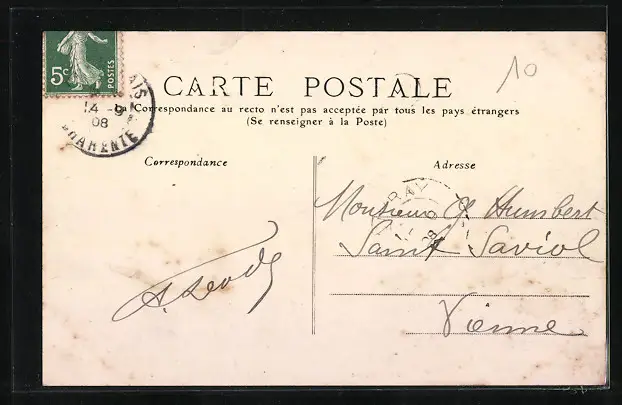 5c
POSTES
14 -9
08
CHARENTE
10
CARTE POSTALE
La Correspondance au recto n'est pas acceptée par tous les pays étrangers
(Se renseigner à la Poste)
Correspondance
Adresse
Monsieur Humbert
Saint Saviol
Vienne